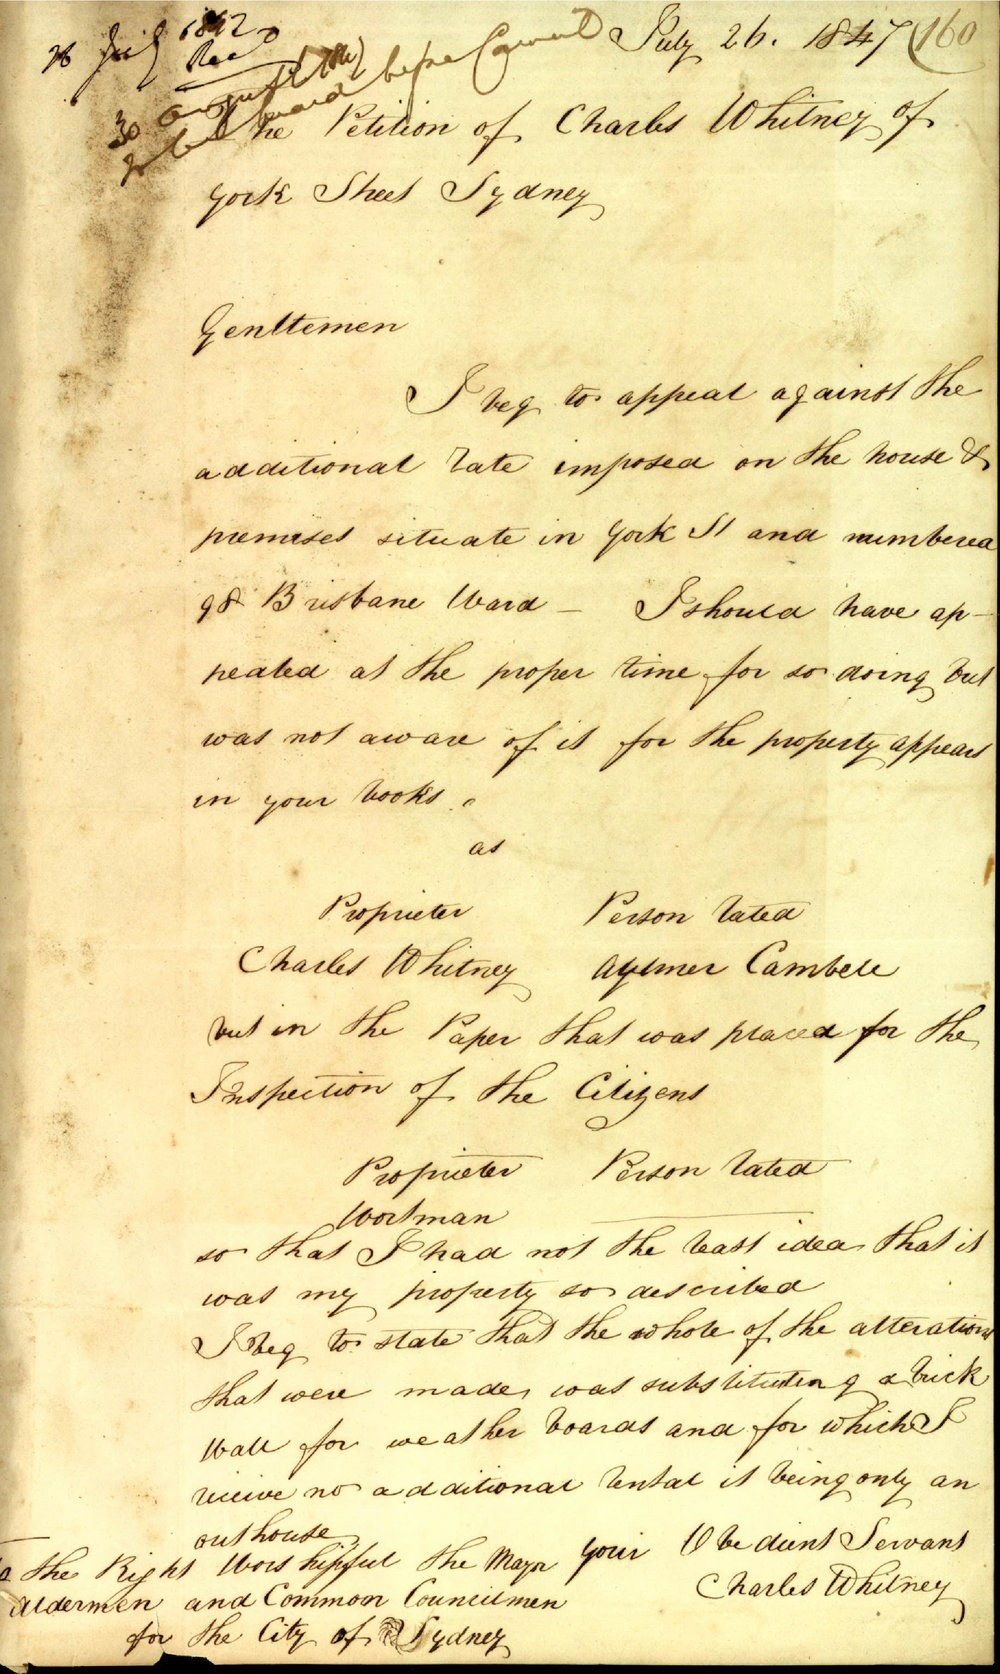 26 July 1847
Recd
July 26. 1847 160
30 August 1847
to be heard before Council
The Petition of Charles Whitney of
York Street Sydney
Genltemen
I beg to appeal against the
additional rate imposed on the house &
premises situate in York St and numbered
98 Brisbane Ward — I should have ap-
pealed at the proper time for so doing but
was not aware of it for the property appears
in your books.
as
Proprieter Person rated
Charles Whitney Aylmer Cambell
but in the Paper that was placed for the
Inspection of the Citizens
Proprieter Person rated
Wortman
so that I had not the least idea that it
was my property so described
I beg to state that the whole of the alterations
that were made, was substituting a brick
Wall for weather boards and for which I
receive no additional rental it being only an
outhouse
Your Obedient Servant
Charles Whitney
To the Right Worshipful the Mayor
Aldermen and Common Councilmen
for the City of Sydney